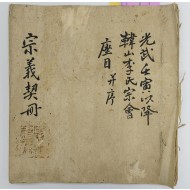 光武壬寅以降
韓山李氏宗會
座目 幷序
宗義契冊